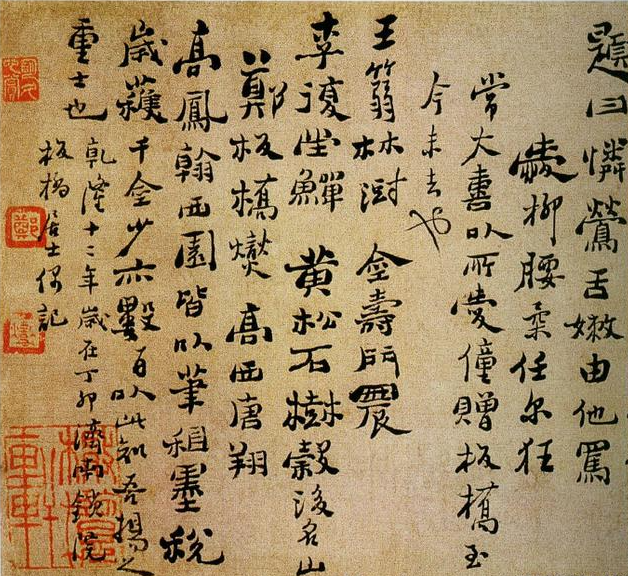 題曰憐鶯舌嫩由他罵
愛柳腰柔任尔狂
常大喜以所愛僮贈板橋至
今未去也
王篛林澍 金壽門農
李復堂鱓 黄松石樹榖後名山
鄭板橋燮 高西唐翔
高鳳翰西園皆以筆租墨税
歲獲千金少亦數百以此知吾揚之
重士也 乾隆十二年歲在丁卯濟南鎖院
板橋居士偶記
鄭